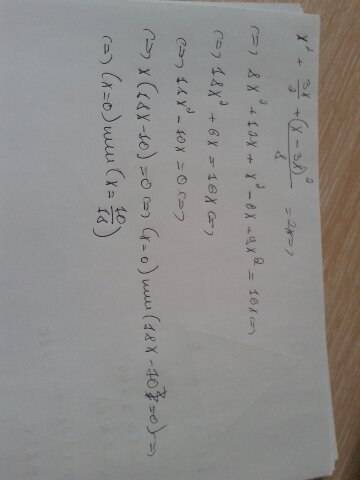 x² + 3x/2 + (x - 3x)²/8 = 2x <=>
<=> 8x² + 12x + x² - 6x + 9x² = 16x <=>
<=> 18x² + 6x = 16x <=>
<=> 18x² - 10x = 0 <=>
<=> x(18x - 10) = 0 <=> (x = 0) или (18x - 10 = 0) <=>
<=> (x = 0) или (x = 10/18)